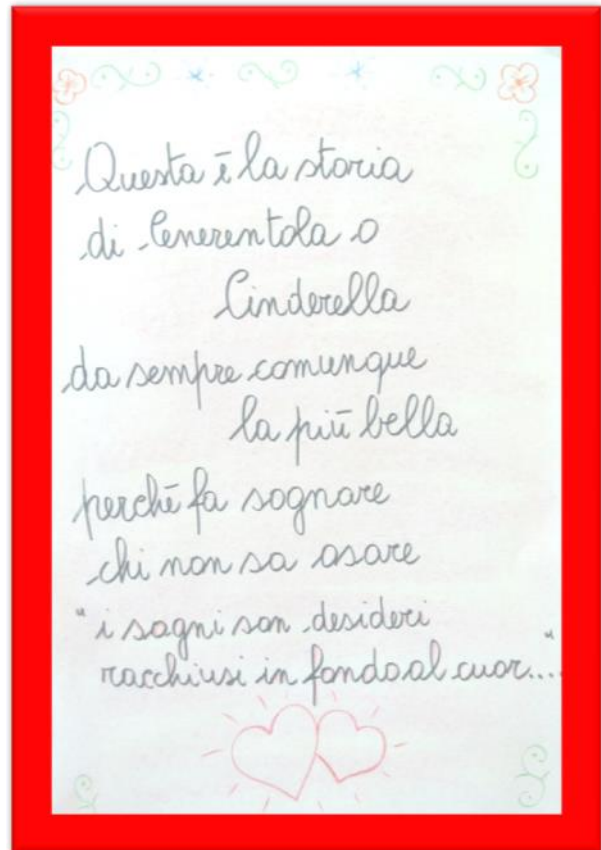 Questa è la storia
di Cenerentola o
Cinderella
da sempre comunque
la più bella
perchē fa sognare
chi non sa osare
"i sogni son desideri
racchiusi in fondo al cuor...."